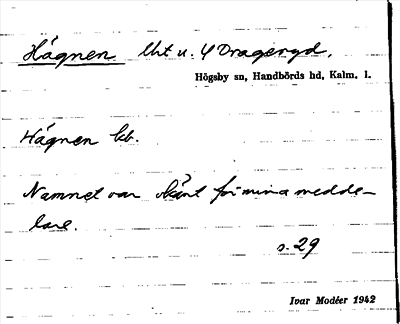 Hägnen lht u. Y Drageryd.
Högsby sn, Handbörds hd, Kalm. l.
Hägnen kb.
Namnet var okänt för mina medde-
lare.
s. 29
Ivar Modéer 1942